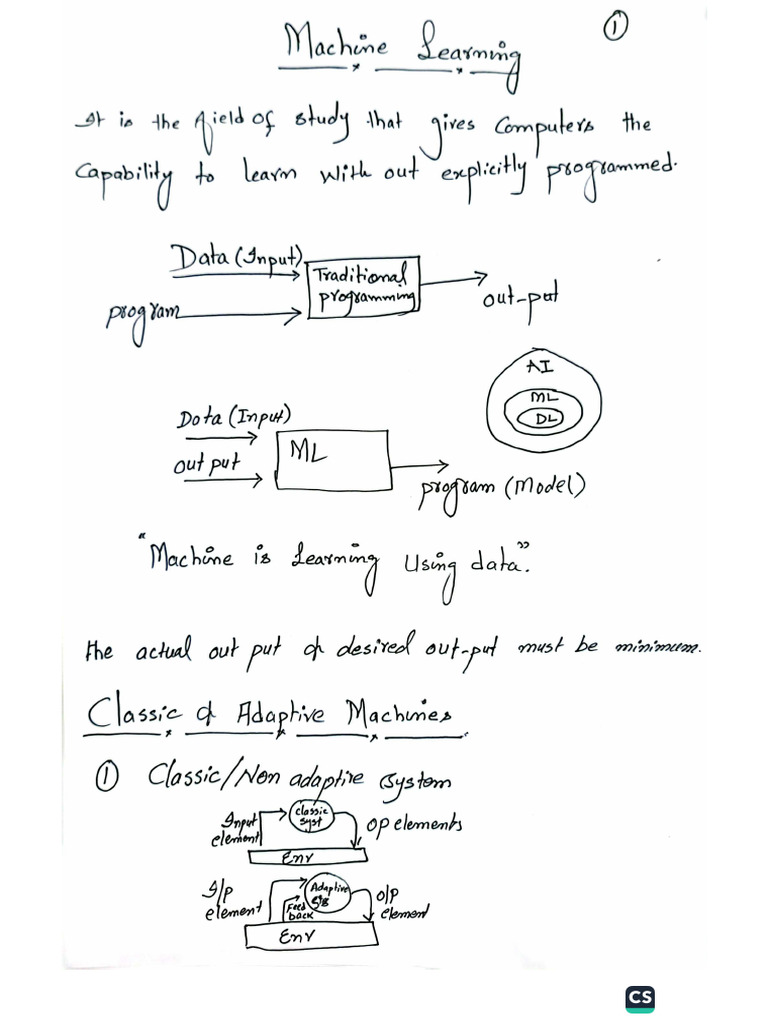 ①
Machine Learning
It is the field of study that gives Computers the
Capability to learn with out explicitly programmed.
Data (Input)
Traditional
programming
program
out-put
AI
ML
DL
Data (Input)
out put
ML
program (Model)
"Machine is Learning using data".
the actual out put & desired out-put must be minimum.
Classic & Adaptive Machines
① Classic/Non adaptive system
Input
element
Classic
syst
OP elements
Env
I/P
element
Adaptive
sys
Feed
back
O/P
element
Env
CS